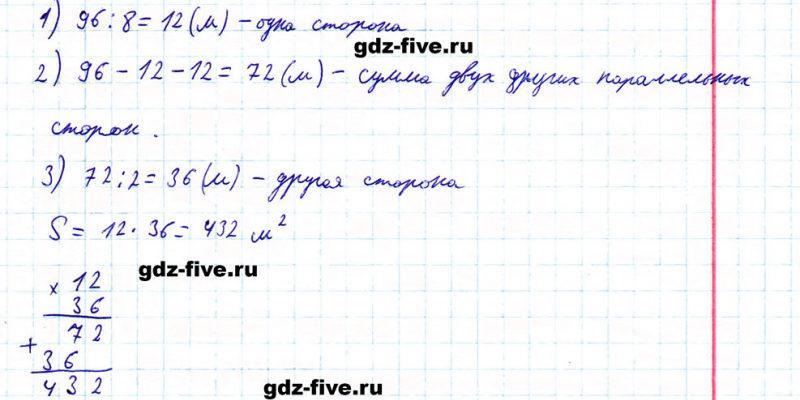 1) 96 : 8 = 12 (м) – одна сторона
gdz-five.ru
2) 96 – 12 – 12 = 72 (м) – сумма двух других параллельных
сторон.
3) 72 : 2 = 36 (м) – другая сторона
gdz-five.ru
S = 12 · 36 = 432 м²
gdz-five.ru
× 12
36
72
+
36
432
gdz-five.ru